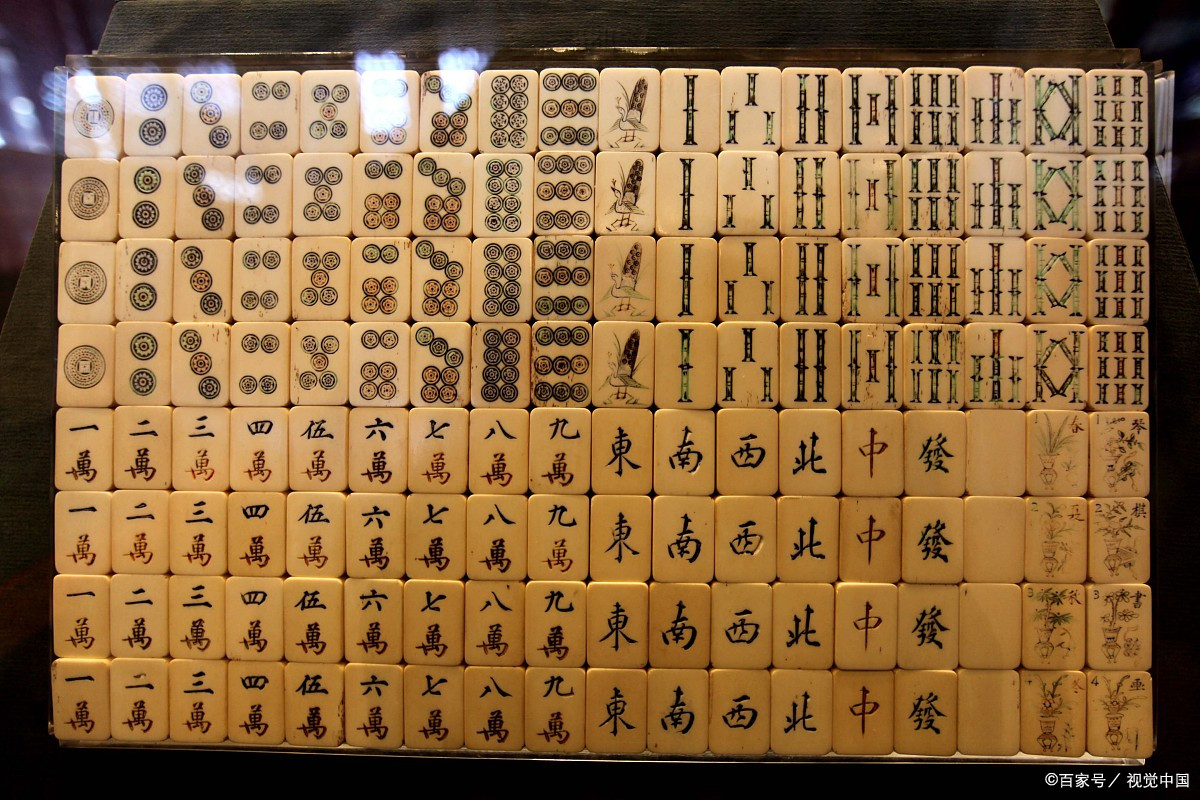 一 二 三 四 伍 六 七 八 九 東 南 西 北 中 發 1 春 1 琴
萬 萬 萬 萬 萬 萬 萬 萬 萬
一 二 三 四 伍 六 七 八 九 東 南 西 北 中 發 2 2 棋
萬 萬 萬 萬 萬 萬 萬 萬 萬
一 二 三 四 伍 六 七 八 九 東 南 西 北 中 發 3 秋 3 書
萬 萬 萬 萬 萬 萬 萬 萬 萬
一 二 三 四 伍 六 七 八 九 東 南 西 北 中 發 冬 4 画
萬 萬 萬 萬 萬 萬 萬 萬 萬
©百家号／视觉中国